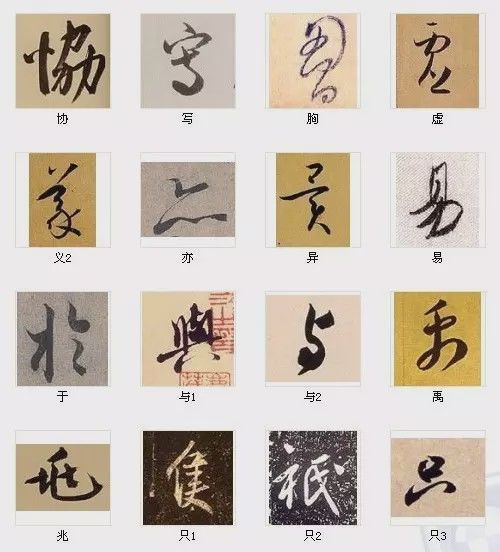 協 寫 胷 虛
协 写 胸 虚
義 亦 異 易
义2 亦 异 易
於 與 与 禹
于 与1 与2 禹
兆 隻 祇 只
兆 只1 只2 只3